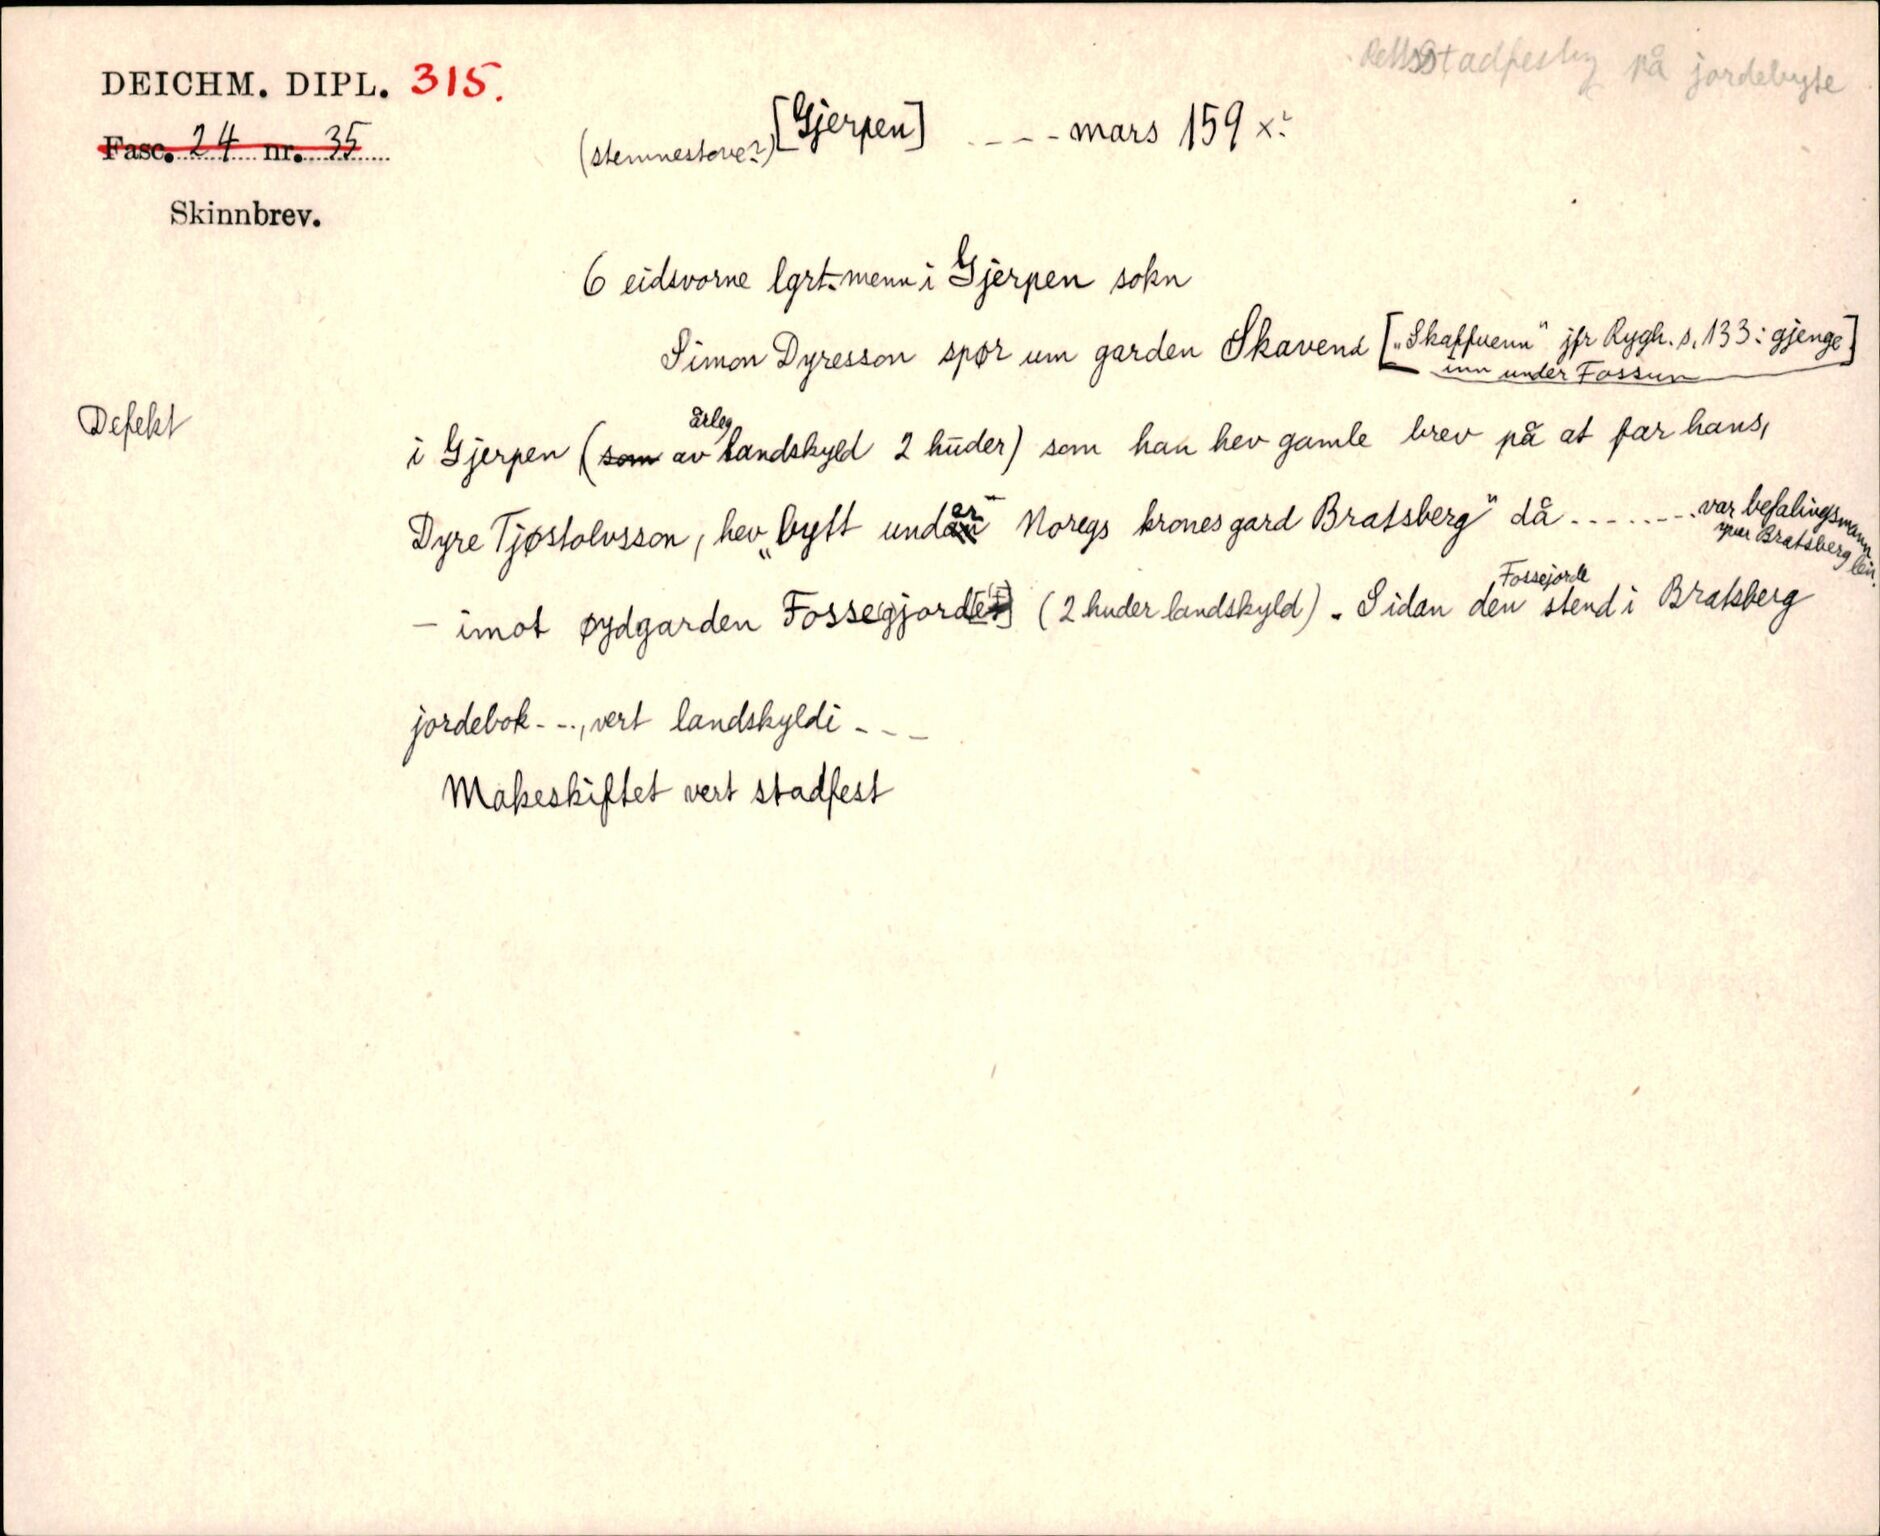 Rettsstadfesting på jordebyte
DEICHM. DIPL. 315.
Fasc. 24 nr. 35
(stemnestove?) [Gjerpen] ---- mars 159x?
Skinnbrev.
6 eidsvorne lgrt.menn i Gjerpen sokn
Simon Dyresson spør um garden Skavend ["Skaffuenn" jfr Rygh. s. 133: gjenge
inn under Fossum]
Defekt
i Gjerpen (som av årleg landskyld 2 huder) som han hev gamle brev på at far hans,
Dyre Tjøstolvsson, hev „bytt under Noregs krones gard Bratsberg" då ........ var befalingsmann
yver Bratsberg len.
- imot øydgarden Fosse(g)jorde[t] (2 huder landskyld). Sidan den Fossejorde stend i Bratsberg
jordebok - -., vert landskyldi - - -
Makeskiftet vert stadfest